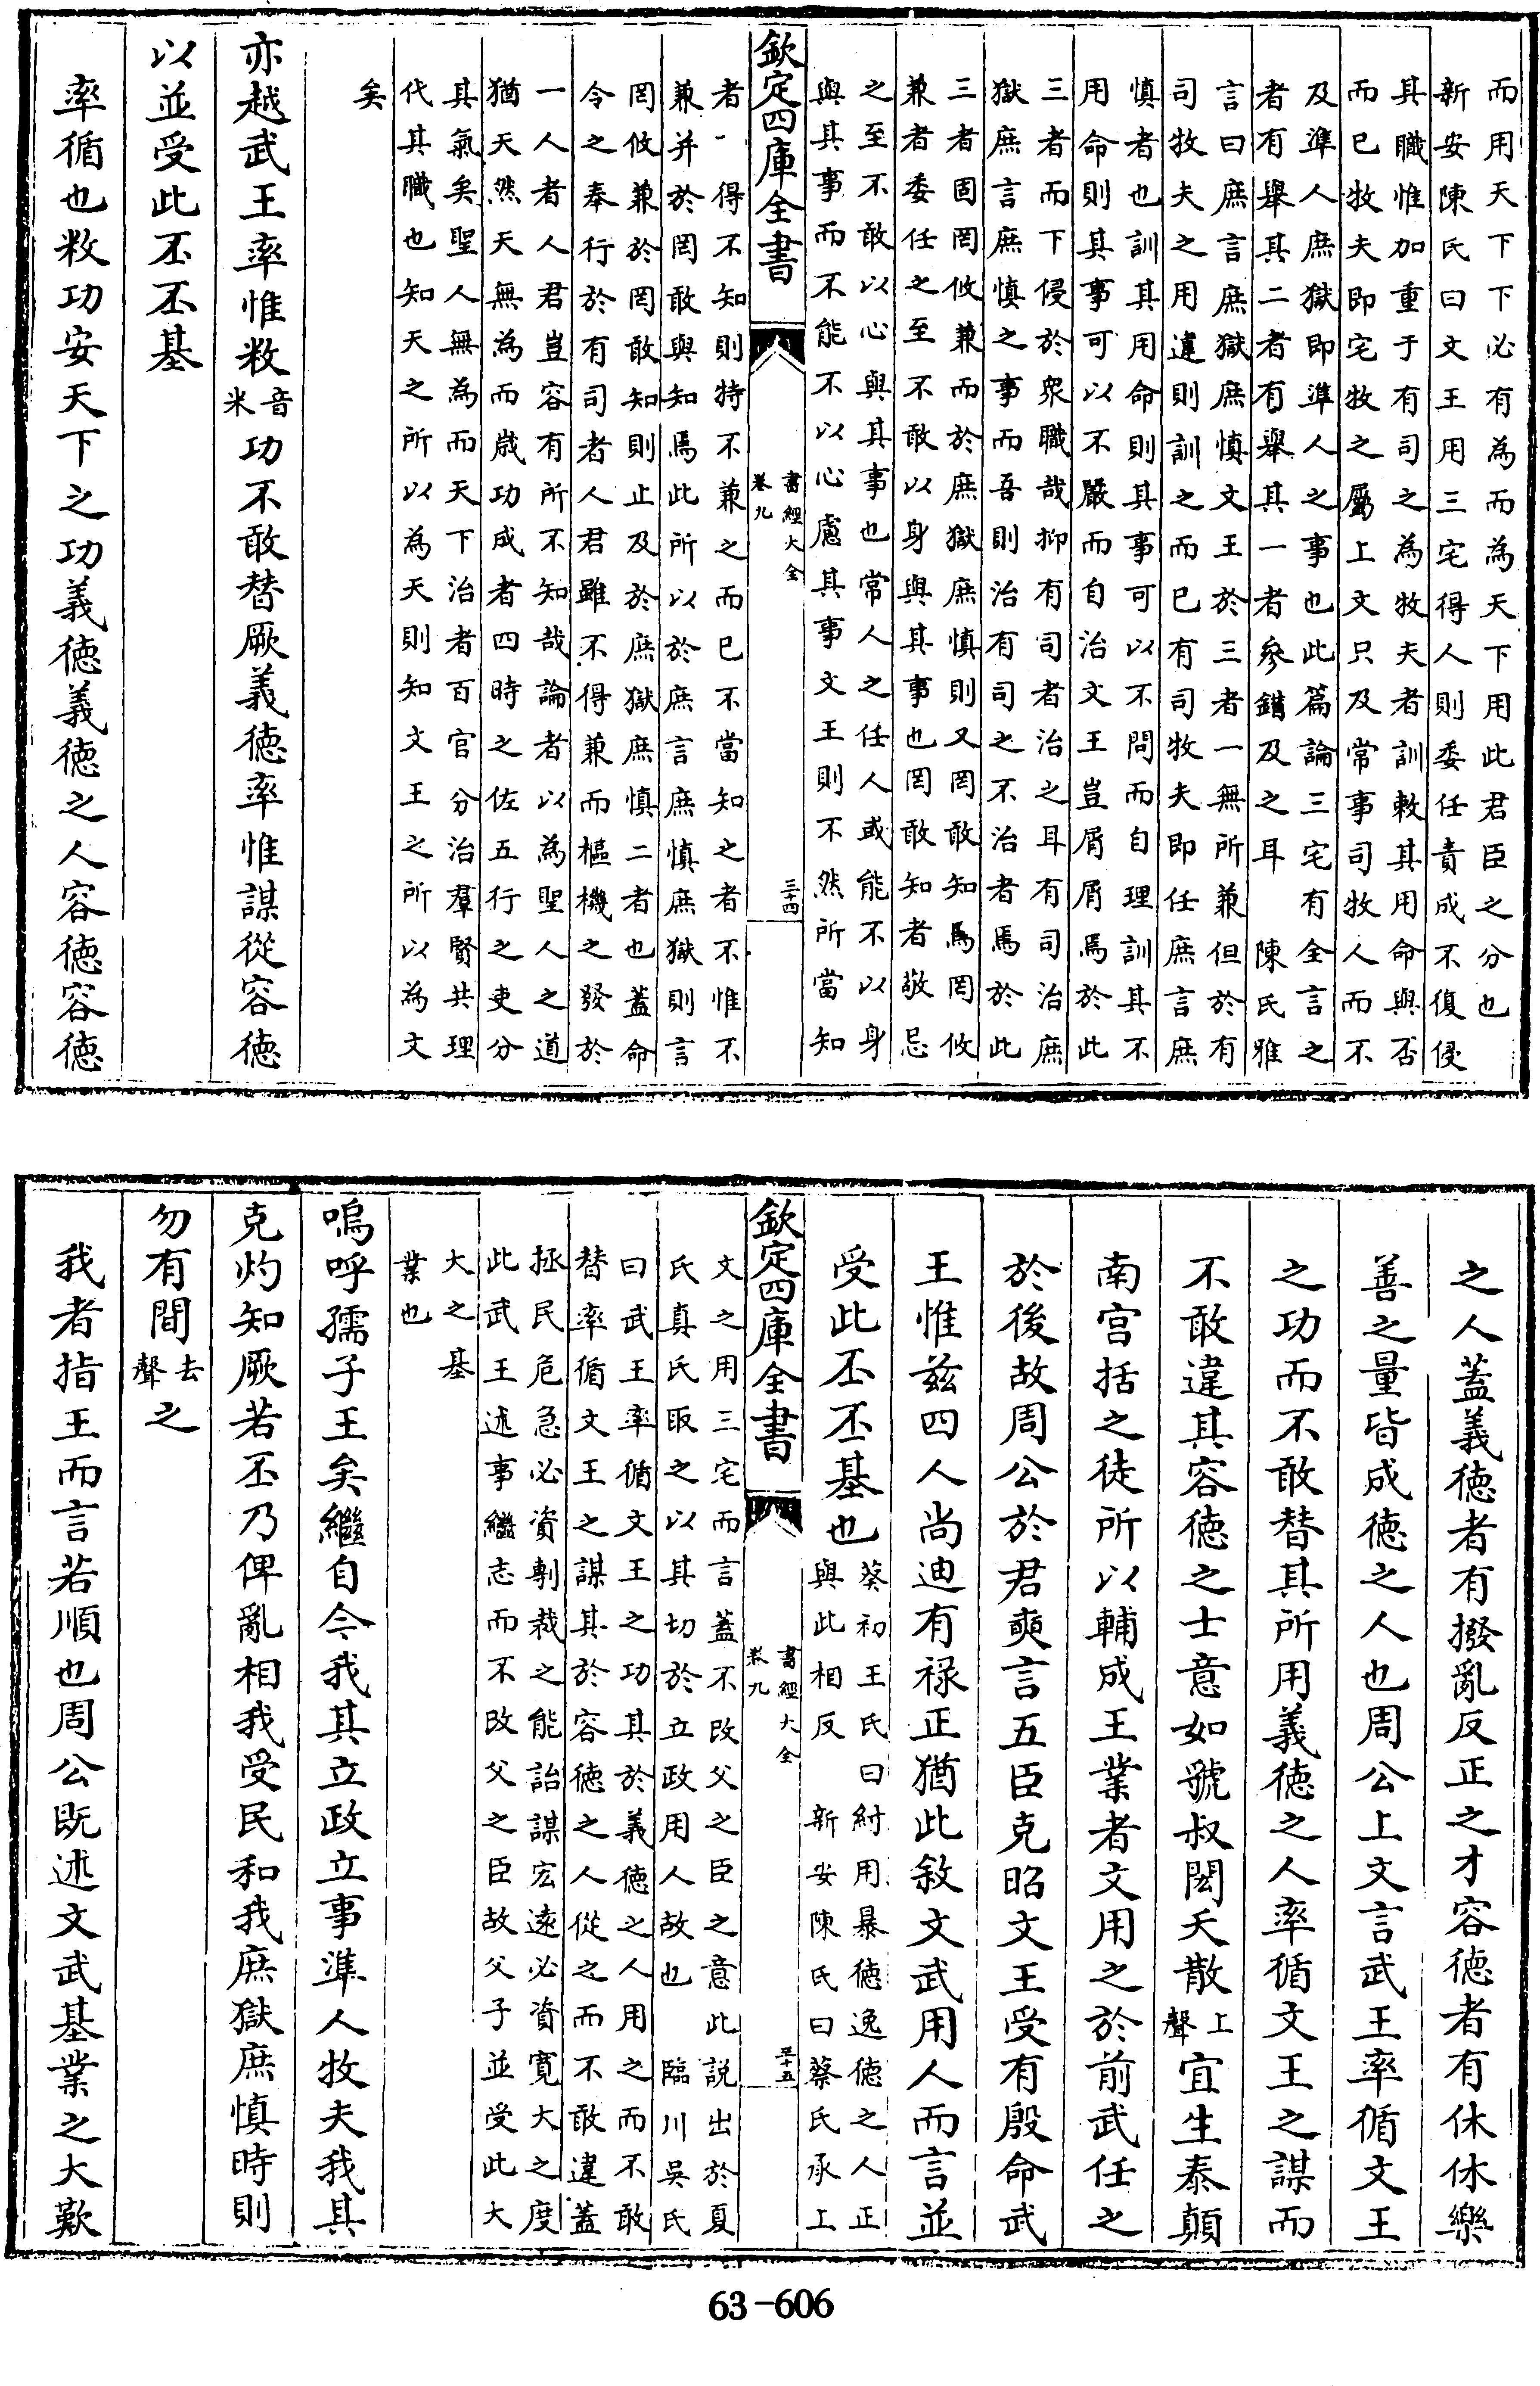 而用天下下必有為而為天下用此君臣之分也
新安陳氏曰文王用三宅得人則委任責成不復侵
其職惟加重于有司之為牧夫者訓敕其用命與否
而已牧夫即宅牧之屬上文只及常事司牧人而不
及準人庶獄即準人之事也此篇論三宅有全言之
者有舉其二者有舉其一者參錯及之耳　陳氏雅
言曰庶言庶獄庶慎文王於三者一無所兼但於有
司牧夫之用違則訓之而已有司牧夫即任庶言庶
慎者也訓其用命則其事可以不問而自理訓其不
用命則其事可以不嚴而自治文王豈屑屑焉於此
三者而下侵於衆職哉抑有司者治之耳有司治庶
獄庶言庶慎之事而吾則治有司之不治者焉於此
三者固罔攸兼而於庶獄庶慎則又罔敢知焉罔攸
兼者委任之至不敢以身與其事也罔敢知者敬忌
之至不敢以心與其事也常人之任人或能不以身
與其事而不能不以心慮其事文王則不然所當知
欽定四庫全書　書經大全　卷九　三十四
者一得不知則特不兼之而已不當知之者不惟不
兼并於罔敢與知焉此所以於庶言庶慎庶獄則言
罔攸兼於罔敢知則止及於庶獄庶慎二者也蓋命
令之奉行於有司者人君雖不得兼而樞機之發於
一人者人君豈容有所不知哉論者以為聖人之道
猶天然天無為而歲功成者四時之佐五行之吏分
其氣矣聖人無為而天下治者百官分治羣賢共理
代其職也知天之所以為天則知文王之所以為文
矣
亦越武王率惟敉音米功不敢替厥義徳率惟謀從容徳
以並受此丕丕基
率循也敉功安天下之功義徳義徳之人容徳容徳
之人蓋義徳者有撥亂反正之才容徳者有休休樂
善之量皆成徳之人也周公上文言武王率循文王
之功而不敢替其所用義徳之人率循文王之謀而
不敢違其容徳之士意如虢叔閎夭散上聲宜生泰顛
南宫括之徒所以輔成王業者文用之於前武任之
於後故周公於君奭言五臣克昭文王受有殷命武
王惟兹四人尚迪有禄正猶此敘文武用人而言並
受此丕丕基也葵初王氏曰紂用暴徳逸徳之人正
與此相反　新安陳氏曰蔡氏承上
欽定四庫全書　書經大全　卷九　三十五
文之用三宅而言蓋不改父之臣之意此説出於夏
氏真氏取之以其切於立政用人故也　臨川吳氏
曰武王率循文王之功其於義徳之人用之而不敢
替率循文王之謀其於容徳之人從之而不敢違蓋
拯民危急必資剸裁之能詒謀宏遠必資寬大之度
此武王述事繼志而不改父之臣故父子並受此大
大之基
業也
嗚呼孺子王矣繼自今我其立政立事準人牧夫我其
克灼知厥若丕乃俾亂相我受民和我庶獄庶慎時則
勿有間去聲之
我者指王而言若順也周公既述文武基業之大歎
63-606